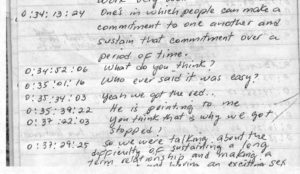 work very
0:34:13:24 One's in which people can make a
commitment to one another and
sustain that commitment over a
period of time.
0:34:52:06 What do you think?
0:35:01:16 Who ever said it was easy?
0:35:34:03 Yeah we got the red..
0:35:39:22 He is pointing to me
0:37:22:03 You think that is why we got
stopped?
0:37:29:25 so we were talking about the
difficulty of sustaining a long
term relationship and making a
having an exciting sex